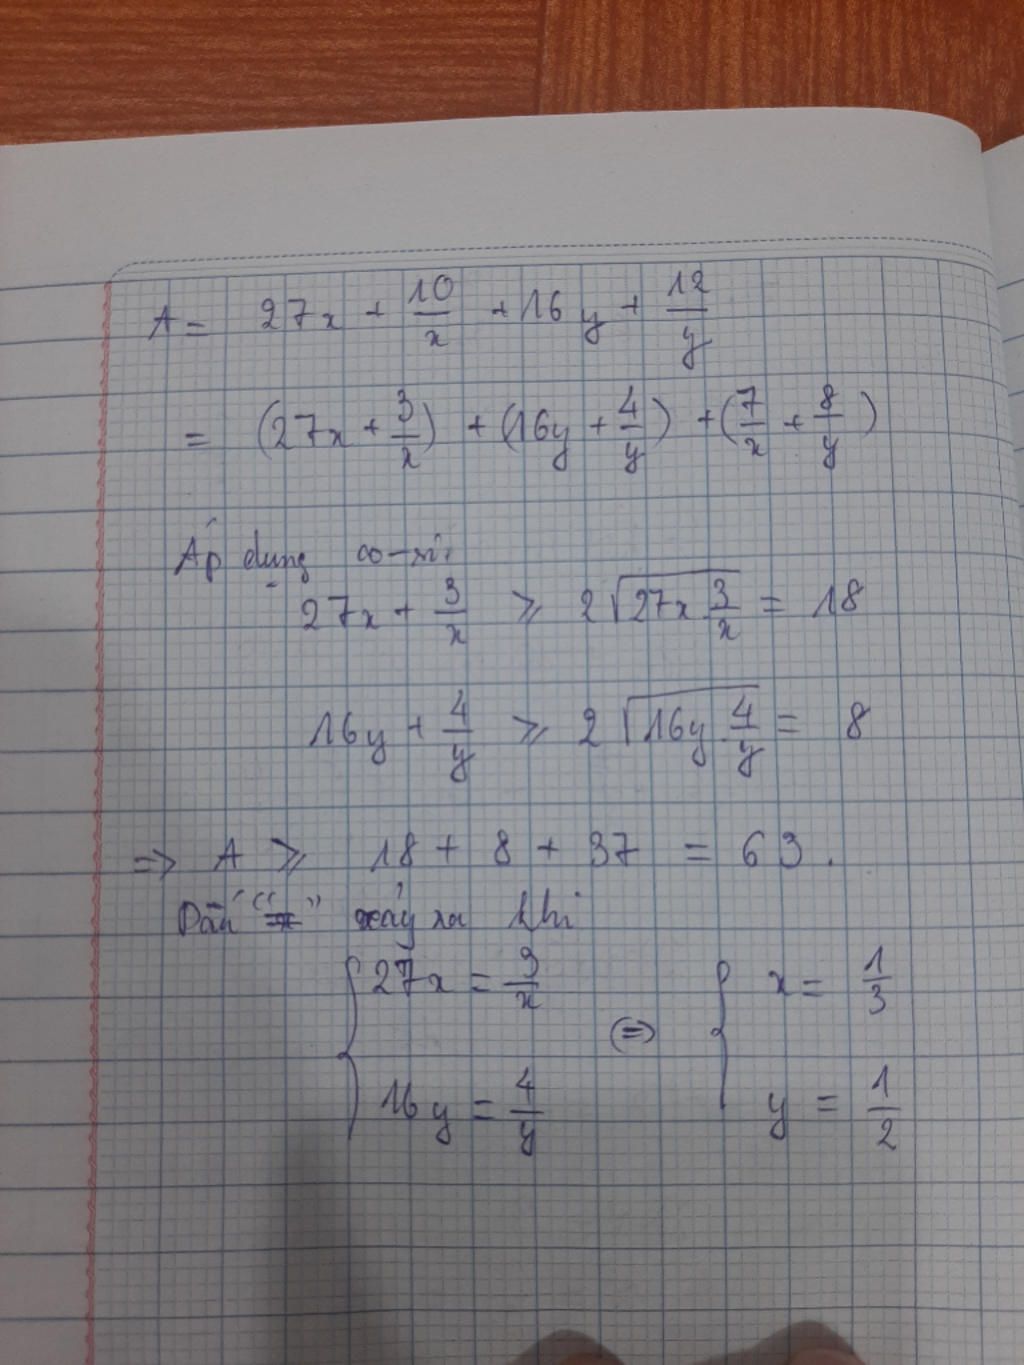 A = 27x + 10/x + 16y + 12/y
= (27x + 3/x) + (16y + 4/y) + (7/x + 8/y)
Áp dụng co-si:
27x + 3/x ≥ 2√(27x.3/x) = 18
16y + 4/y ≥ 2√(16y.4/y) = 8
=> A ≥ 18 + 8 + 37 = 63.
Dấu "=" xảy ra khi
{ 27x = 3/x (=) { x = 1/3
16y = 4/y y = 1/2